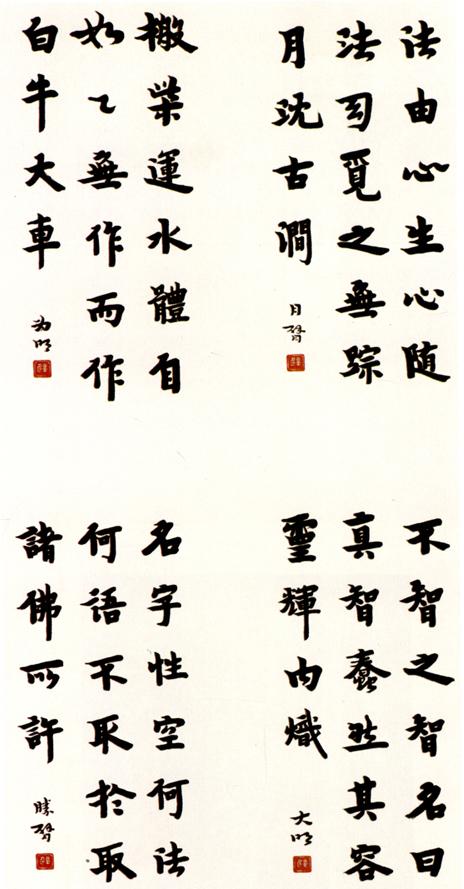 法由心生心随
法覓之無踪
月沈古澗
月
搬柴運水體自
如々無作而作
白牛大車
为明
不智之智名曰
真智蠢然其容
靈輝内熾
大明
名字性空何法
何語不取於取
諸佛所許
勝